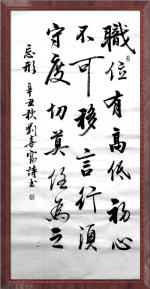 職位有高低初心
不可移言行須
守度切莫任為之
忘形 辛丑秋劉喜富詩書